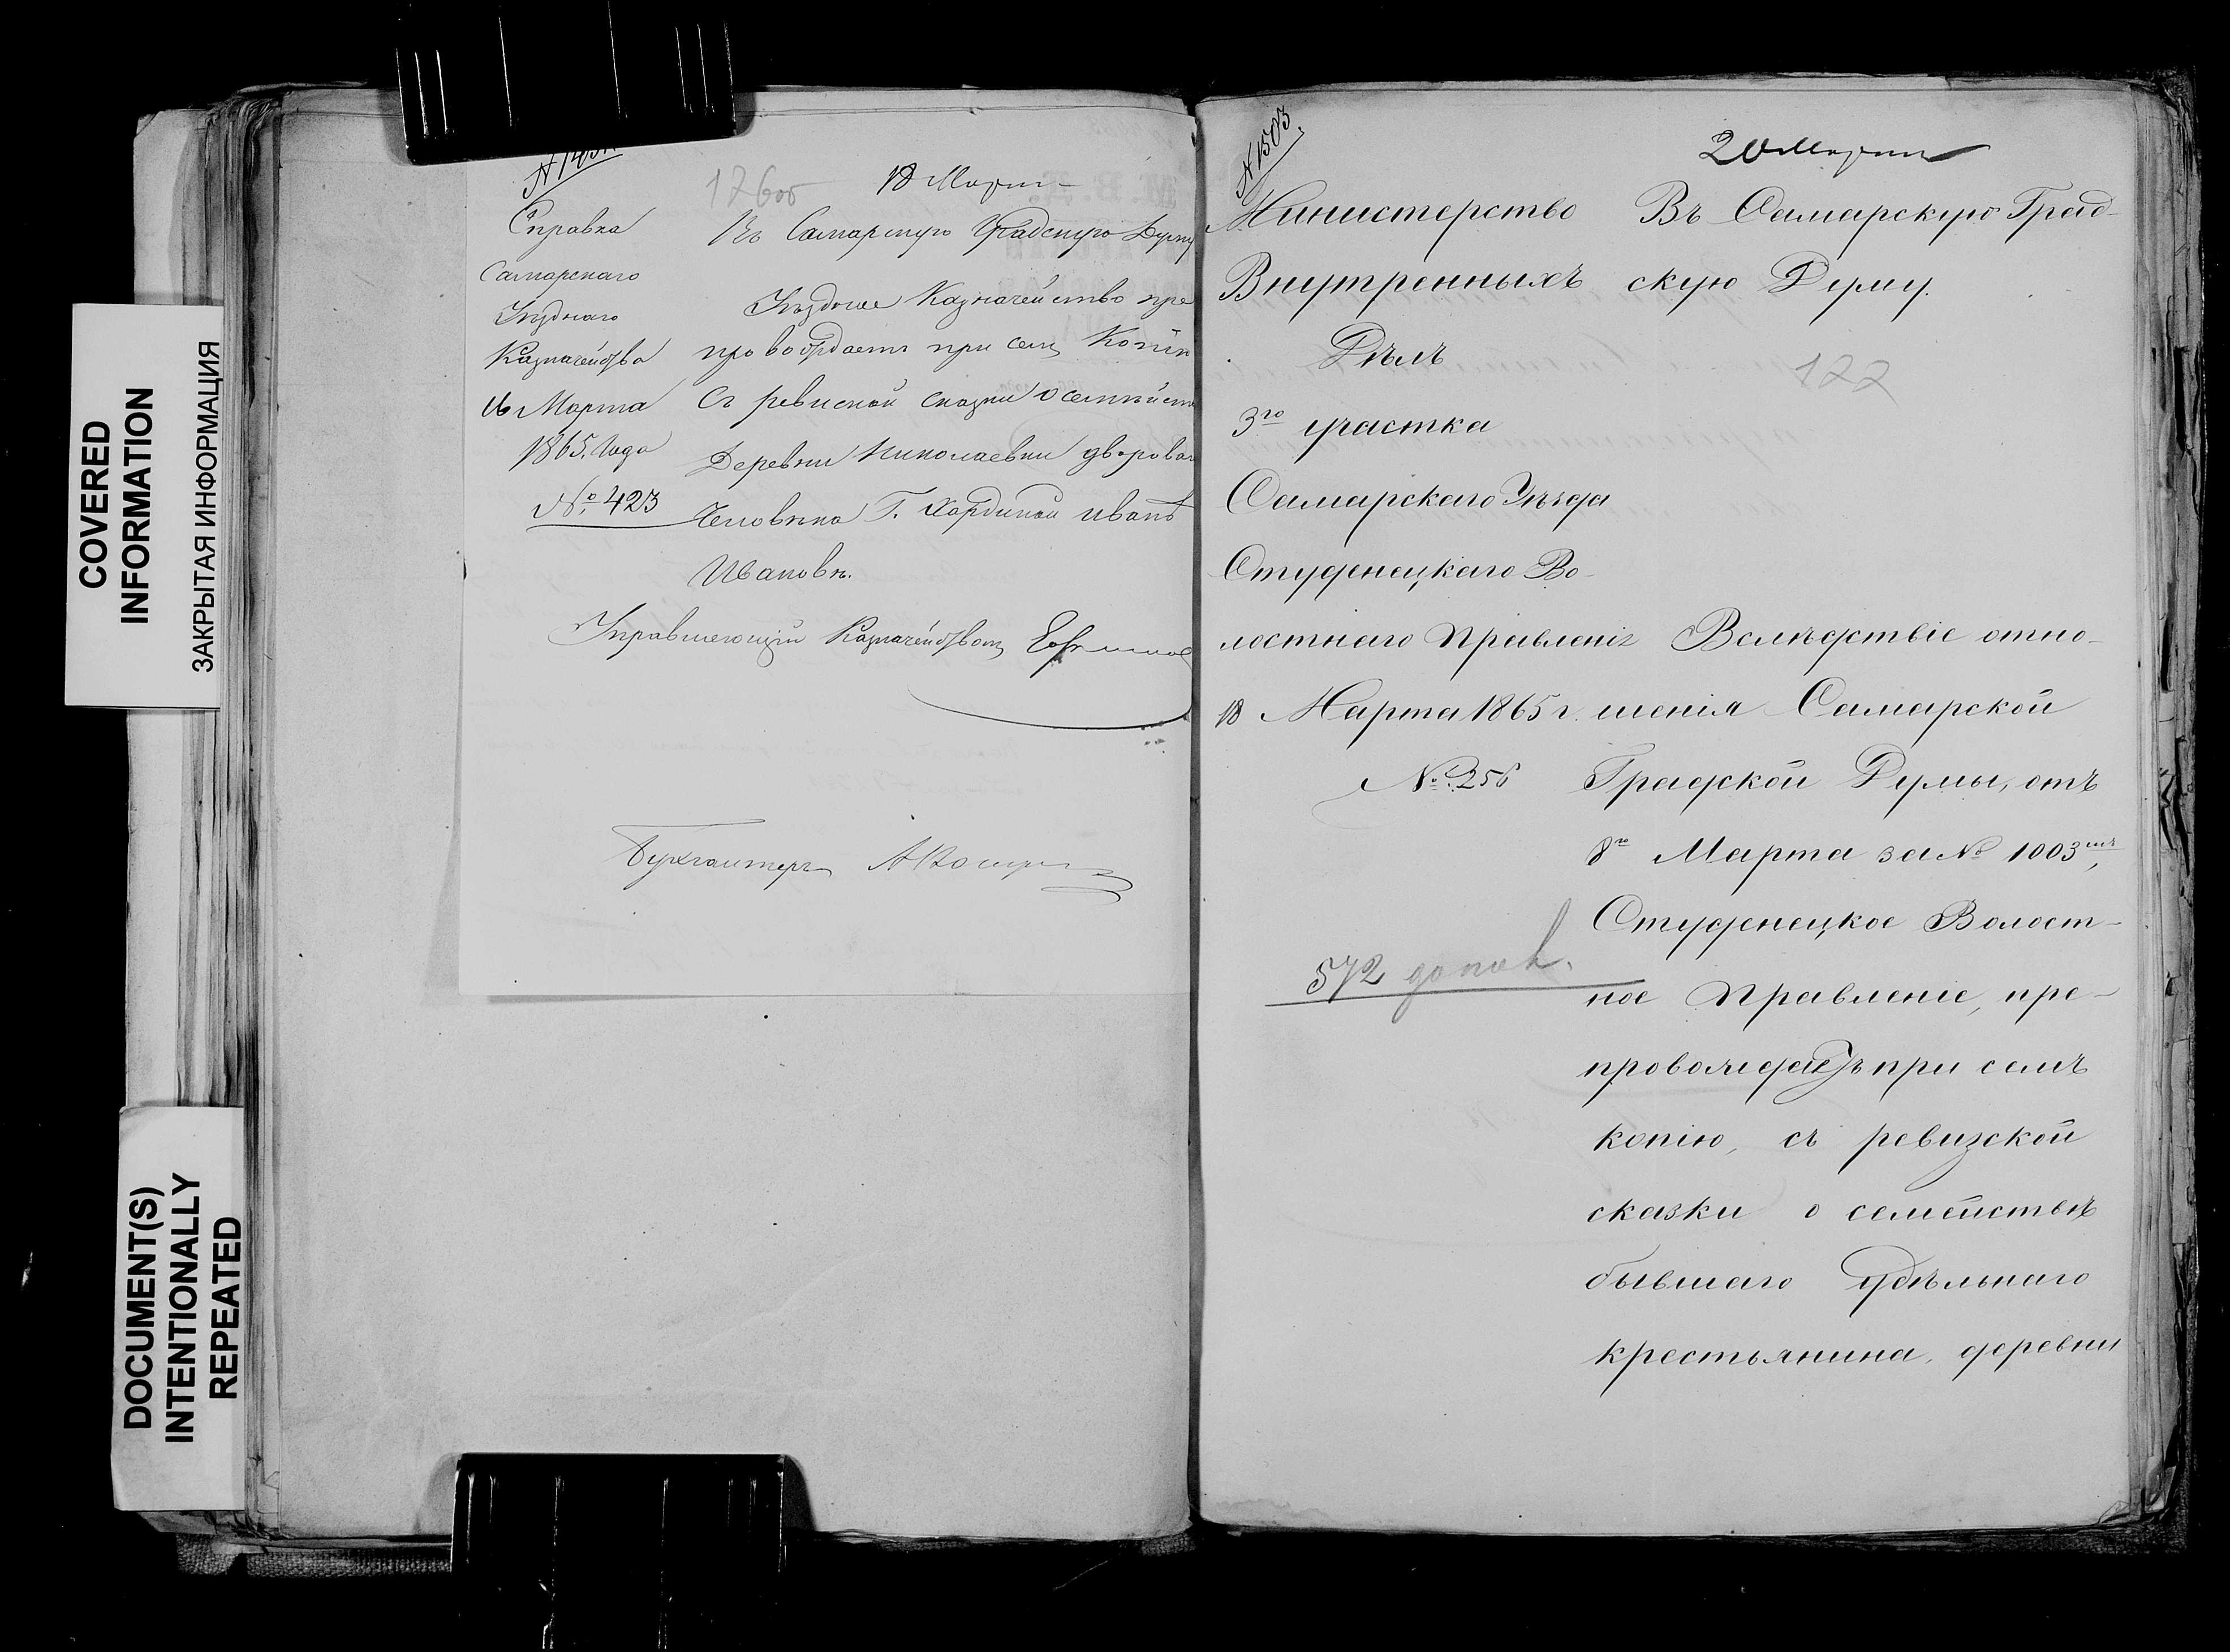 COVERED
INFORMATION
ЗАКРЫТАЯ ИНФОРМАЦИЯ
DOCUMENT(S)
INTENTIONALLY
REPEATED
126об
18 Марта
Справка
Самарскаго
Уѣзднаго
Казначейства
16 Марта
1865. Года
№ 423
Въ Самарскую Градскую Думу
Уѣздное Казначейство пре
провождаетъ при семъ Копiю
съ ревиской сказки о семействѣ
Деревни Николаевки дворова
Человѣка Г. Хардиной Иванѣ
Ивановѣ.
Управляющiй Казначействомъ
Бухгалтеръ
№ 1503.
20 Марта
Министерство
Внутренныхъ
Дѣлъ
3го участка
Самарскаго Уѣзда
Студенецкаго Во-
лостнаго Правленiя
18 Марта 1865 г.
№ 256
Въ Самарскую Град-
скую Думу.
127
Вслѣдствiе отно-
шенiя Самарской
Градской Думы, отъ
8го Марта за № 1003мъ,
Студенецкое Волост-
ное Правленiе, пре-
провождаетъ при семъ
копiю, съ ревизской
сказки о семействѣ
бывшаго Удѣльнаго
крестьянина, деревни
572